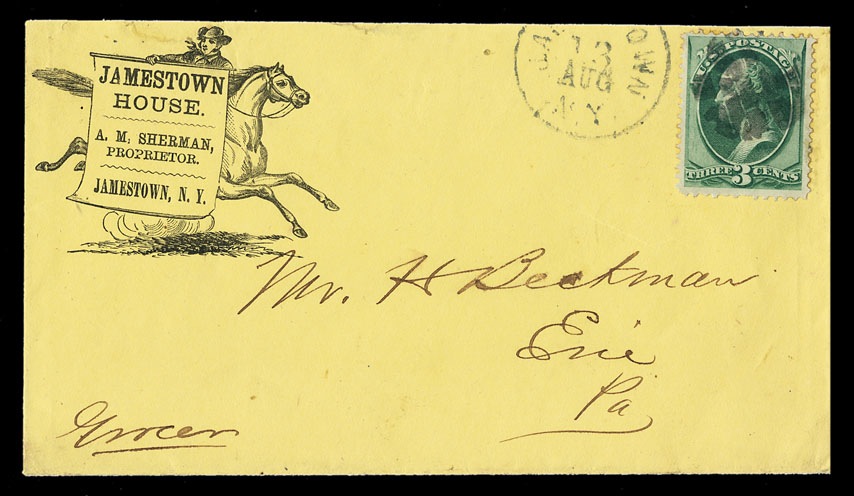 JAMESTOWN
HOUSE.
A. M. SHERMAN,
PROPRIETOR.
JAMESTOWN, N. Y.
13
AUG
N.Y.
U.S. POSTAGE
THREE 3 CENTS
Mr. H Beckman
Erie
Pa
Grocer